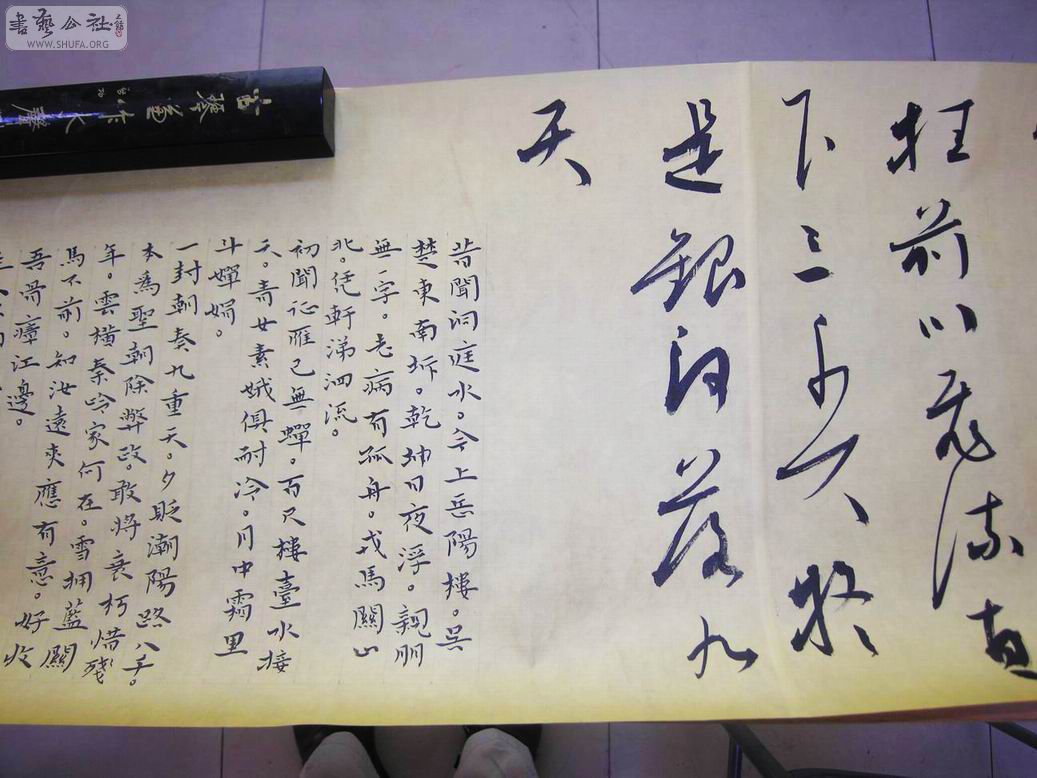 書藝公社
WWW.SHUFA.ORG
挂前川飛流直
下三千尺疑
是銀河落九
天
昔聞洞庭水。今上岳陽樓。吳
楚東南坼。乾坤日夜浮。親朋
無一字。老病有孤舟。戎馬關山
北。凭軒涕泗流。
初聞征雁已無蟬。百尺樓臺水接
天。青女素娥俱耐冷。月中霜里
斗嬋娟。
一封朝奏九重天。夕貶潮陽路八千。
本為聖朝除弊政。敢將衰朽惜殘
年。雲橫秦岭家何在。雪擁藍關
馬不前。知汝遠來應有意。好收
吾骨瘴江邊。